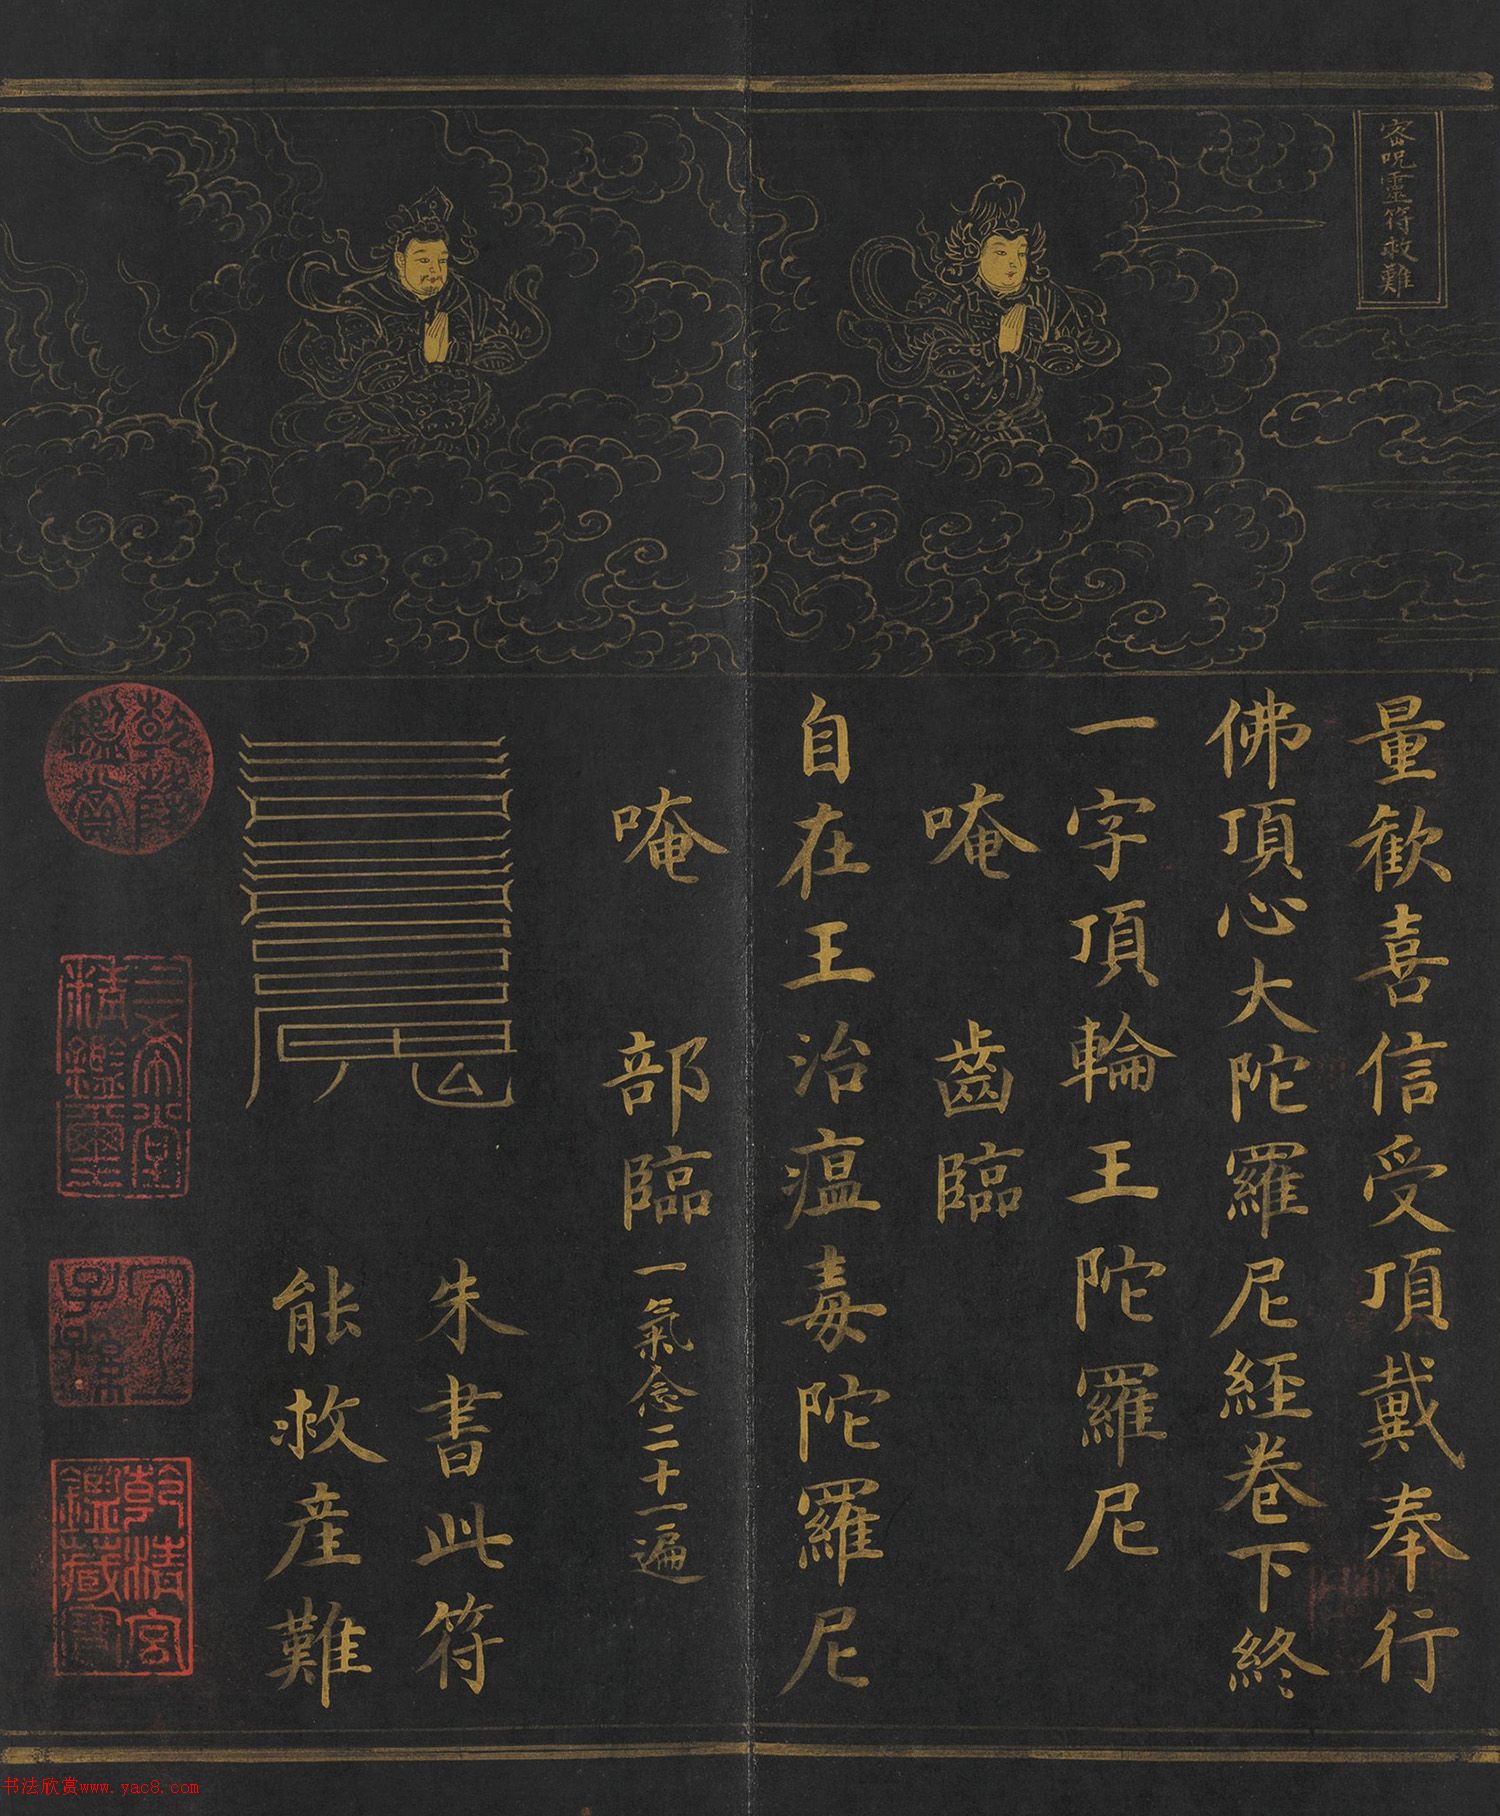 密呪靈符救難
量歡喜信受頂戴奉行
佛頂心大陀羅尼經卷下終
一字頂輪王陀羅尼
唵 齒臨
自在王治瘟毒陀羅尼
唵 部臨 一氣念二十一遍
朱書此符
能救產難
乾隆鑑賞
三希堂精鑑璽
宜子孫
乾清宮鑑藏寶
书法欣赏www.yac8.com